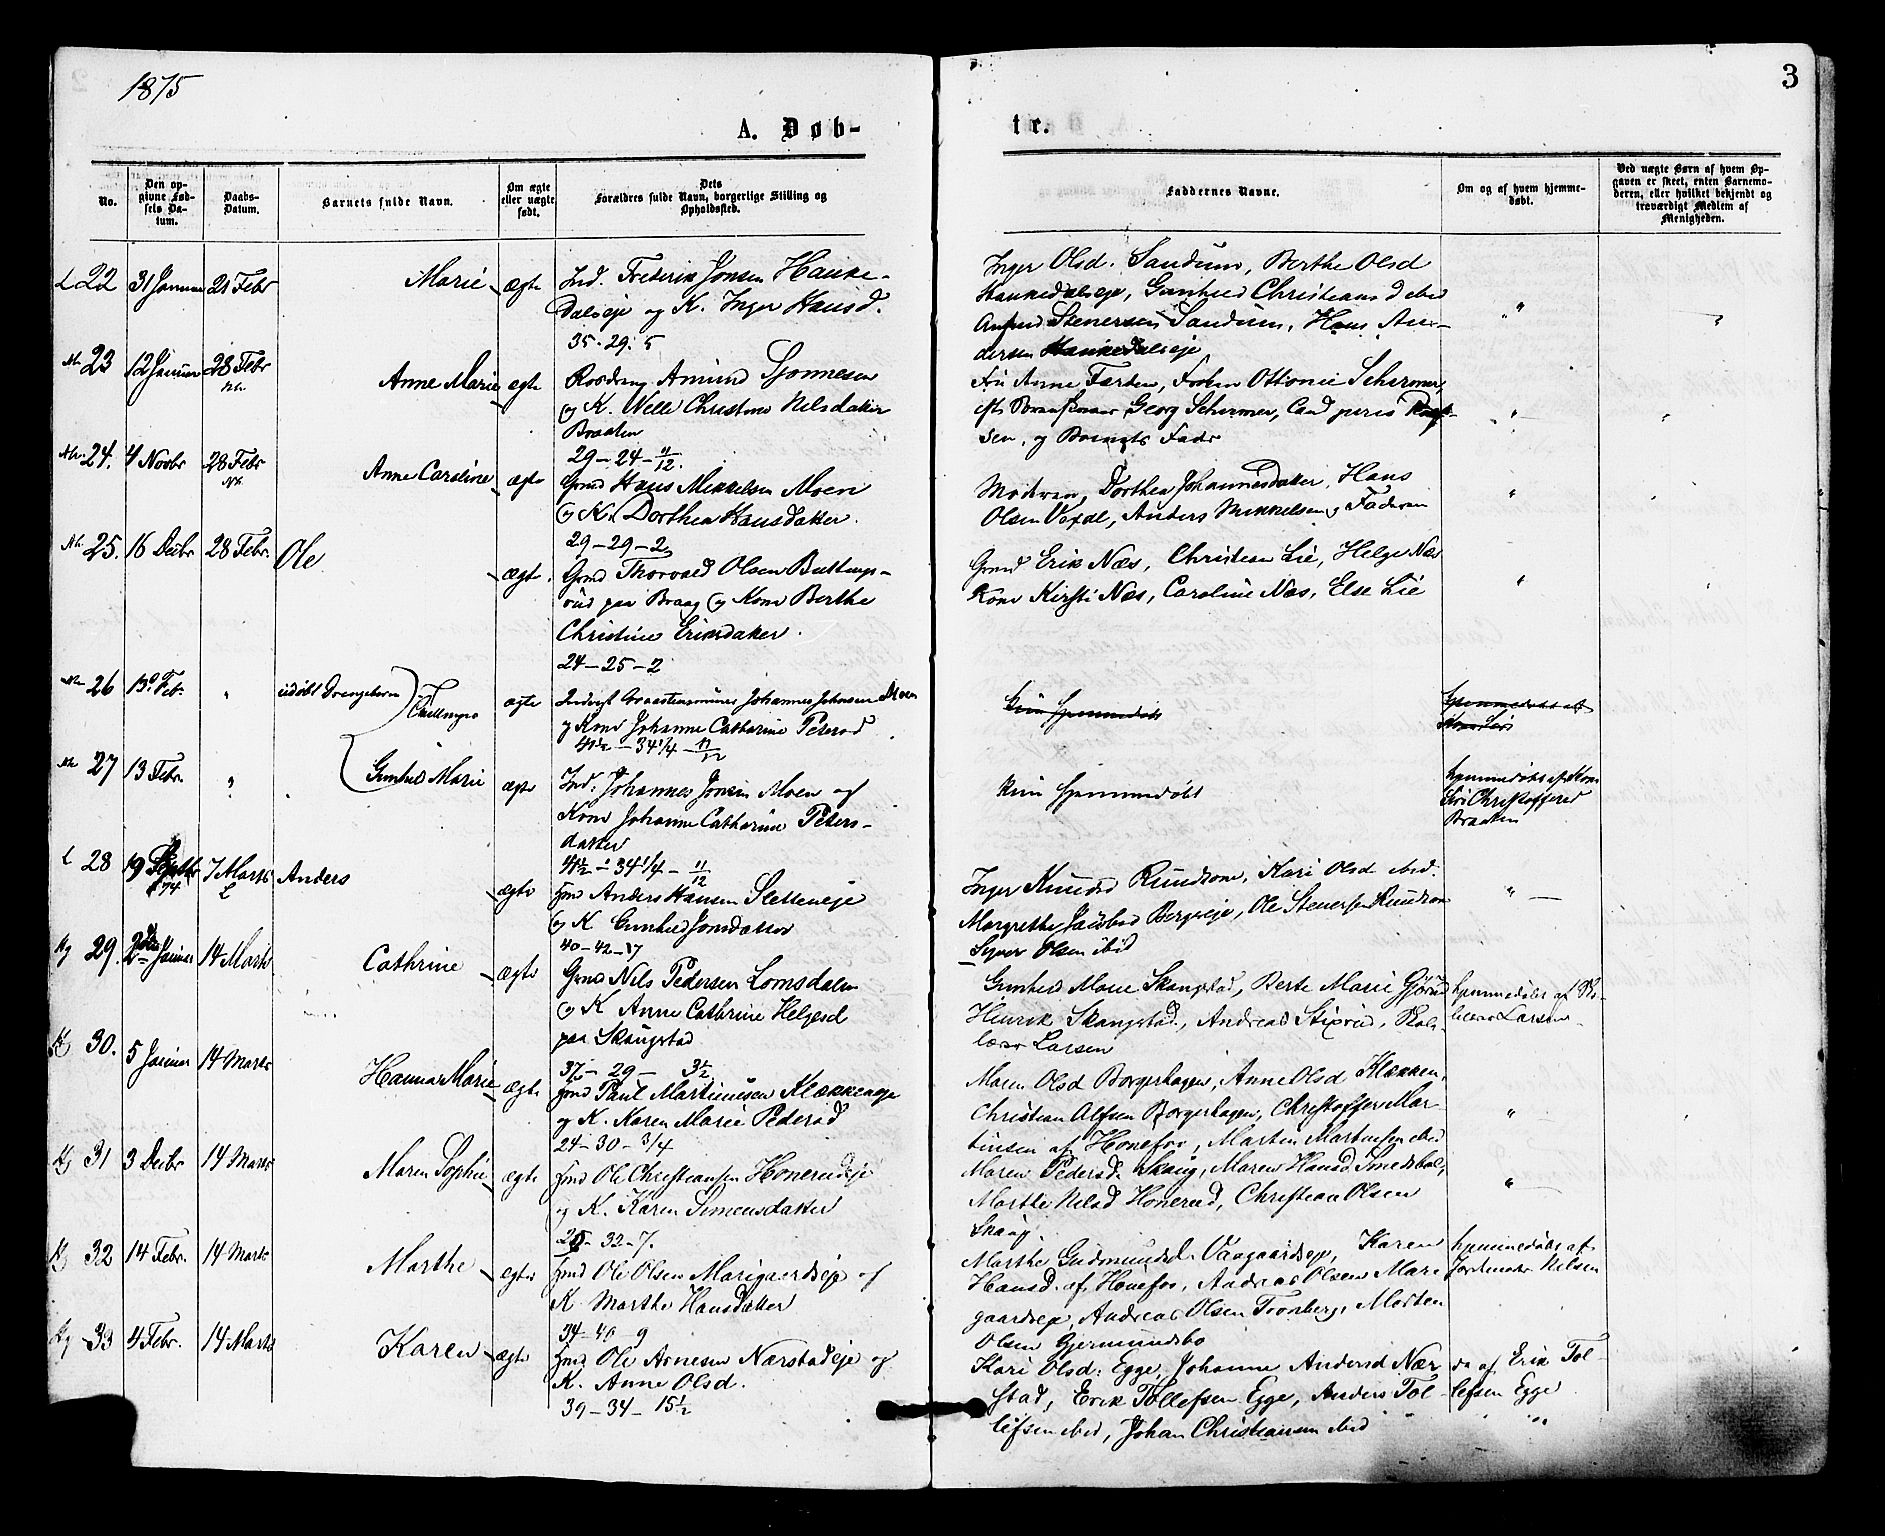 1875
3
A. Døb-
te.
No.
Den op-
givne Fød-
sels Da-
tum.
Daabs-
Datum.
Barnets fulde Navn.
Om ægte
eller uægte
født.
Dets
Forældres fulde Navn, borgerlige Stilling og
Opholdssted.
Faddernes Navne.
Om og af hvem hjemme-
døbt.
Ved uægte Børn af hvem Op-
gaven er skeet, enten Barnemo-
deren, eller hvilket bekjendt og
troværdigt Medlem af
Menigheden.
L 22 31 Januar 21 Febr Marie ægte Ind. Frederik Jonsen Hanke-
dalseje og K. Inger Hansd.
35-29-5
Inger Olsd. Sandum, Berthe Olsd
Hankedalseje, Gunhild Christiansd ibid
Stenersen Sandum, Hans An-
dersen Hankedalseje
Nh. 23 12 Januar 28 Febr Nh. Anne Marie ægte Amund
og K. Christine Nilsdatter
Braaten
29-24-11/12.
Fru Anne Ottonie Schirmer,
Georg Schirmer, Cand juris
sen, og Barnets Fader
Nh. 24. 4 Novbr 28 Febr Nh. Anne Caroline ægte Gmd Hans Mikkelsen Moen
og K. Dorthea Hansdatter.
29-29-2
Moderen, Dorthea Johannesdatter, Hans
Olsen, Anders Mikkelsen og Faderen
Nh. 25. 16 Decbr 28 Febr. Ole ægte. Gmd Thorvald Olsen
rud paa Braag og Kone Berthe
Christine Eriksdatter.
24-25-2
Gmd Erik Næs, Christian Lie, Helge Næs
Kone Kirsti Næs, Caroline Næs, Else Lie
Nh 26 13 Feb. " udøbt Drengebarn Tvillinger ægte Johannes Johnsen Moen
og Kone Johanne Cathrine Petersd
41½-34¼-11/12
kun hjemmedøbt
hjemmedøbt af
Nh 27 13 Febr. " Gunhild Marie ægte Ind: Johannes Jonsen Moen og
Kone Johanne Cathrine Peters-
datter
41½-34¼-11/12
kun hjemmedøbt
hjemmedøbt af Kone
Siri Christoffersd
Braaten
L 28 19 Septbr 74 7 Marts L Anders ægte Hmd Anders Hansen Sletteneje
og K Gunhild Jonsdatter
40-42-17
Inger Knudsd Rundtom, Kari Olsd ibid.
Margrethe Jacobsd Bergseje, Ole Stenersen Rundtom
Syver Olsen ibid
Hg 29. 2den Januar 14 Marts Cathrine ægte Gmd Nils Pedersen Lomsdalen
og K Anne Cathrine Helgesd
paa Skaugstad
37-29-3½
Gunhild Marie Skaugstad, Berte Marie Gjörud
Henrik Skaugstad, Andreas Stixrud, Kol-
lærer Larsen
hjemmedøbt af
lærer Larsen
Hg 30. 5 Januar 14 Marts Hanna Marie ægte Hmd Paul Martinsen Klækkeneje
og K. Karen Marie Pedersd
24-30-3/4
Maren Olsd Borgerhagen, Anne Olsd Klækken,
Christian Alfsen Borgerhagen, Christoffer Mar-
tinsen af Honefos, Martin Martinsen ibid
Hg 31 3 Decbr 14 Marts Maren Sophie ægte Hmd Ole Christiansen Honerudeje
og K. Karen Simensdatter
25-32-7.
Maren Pedersd. Skaug, Maren Hansd. Smedsbøl,
Marthe Nilsd Honerud, Christian Olsen
Skaug.
Hg 32 14 Febr. 14 Marts Marthe ægte Hmd Ole Olsen Marigaardseje og
K. Marthe Hansdatter
34-40-9
Marthe Gudmundsd. Vaagaardseje, Karen
Hansd. af Honefos, Andreas Olsen Mari
gaardseje, Andreas Olsen Tronberg, Morten
Olsen Gjermundsbo
hjemmedøbt af
Jordmoder Nilsen
Hg 33 4 Febr. 14 Marts Karen ægte Hmd Ole Arnesen Nærstadeje og
K. Anne Olsd.
39-34-15½
Kari Olsd. Egge, Johanne Andersd Nær
stad, Erik Tollefsen Egge, Anders Tol-
lefsen ibid, Johan Christiansen ibid
do af Erik Tol-
lefsen Egge